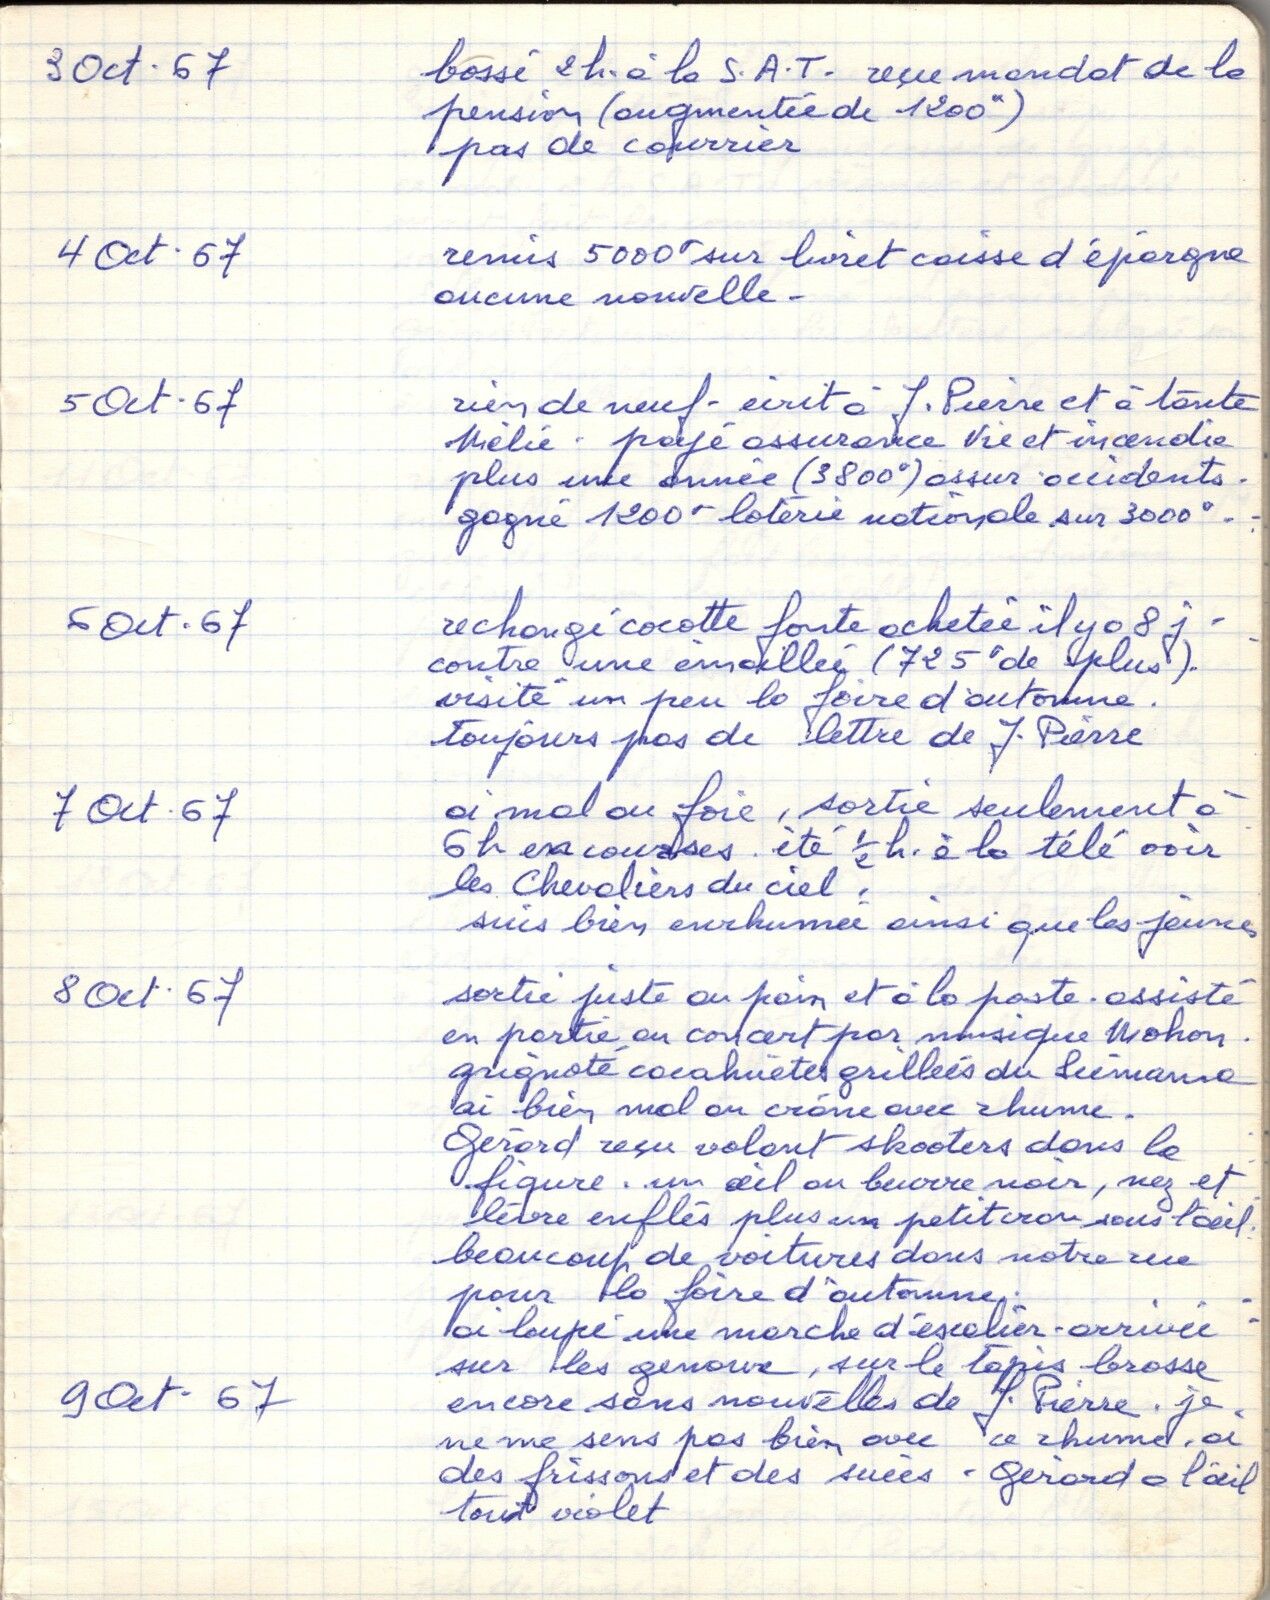 3 Oct. 67 bossé 2h. à la S.A.T. reçu mandat de la
pension (augmentée de 1200°)
pas de courrier
4 Oct. 67 remis 5000° sur livret caisse d'épargne
aucune nouvelle -
5 Oct. 67 rien de neuf - écrit à J. Pierre et à tante
Mélie. payé assurance vie et incendie
plus une année (3800°) assur accidents.
gagné 1200° loterie nationale sur 3000°.
6 Oct. 67 rechangé cocotte fonte achetée il y a 8 j -
contre une émaillée (725° de plus).
visité un peu la foire d'automne.
toujours pas de lettre de J. Pierre
7 Oct. 67 ai mal au foie, sortie seulement à
6h en courses. été ½ h. à la télé voir
les Chevaliers du ciel.
suis bien enrhumée ainsi que les jeunes
8 Oct. 67 sortie juste au pain et à la poste. assisté
en partie au concert par musique Mohon.
grignoté cacahuètes grillées du
ai bien mal au crâne avec rhume.
Gérard reçu volant skooters dans la
figure. un œil au beurre noir, nez et
lèvre enflés plus un petit trou sous l'œil.
beaucoup de voitures dans notre rue
pour la foire d'automne.
ai loupé une marche d'escalier - arrivée
sur les genoux, sur le tapis brosse
9 Oct. 67 encore sans nouvelles de J. Pierre. je
ne me sens pas bien avec ce rhume. ai
des frissons et des suées - Gérard a l'œil
tout violet